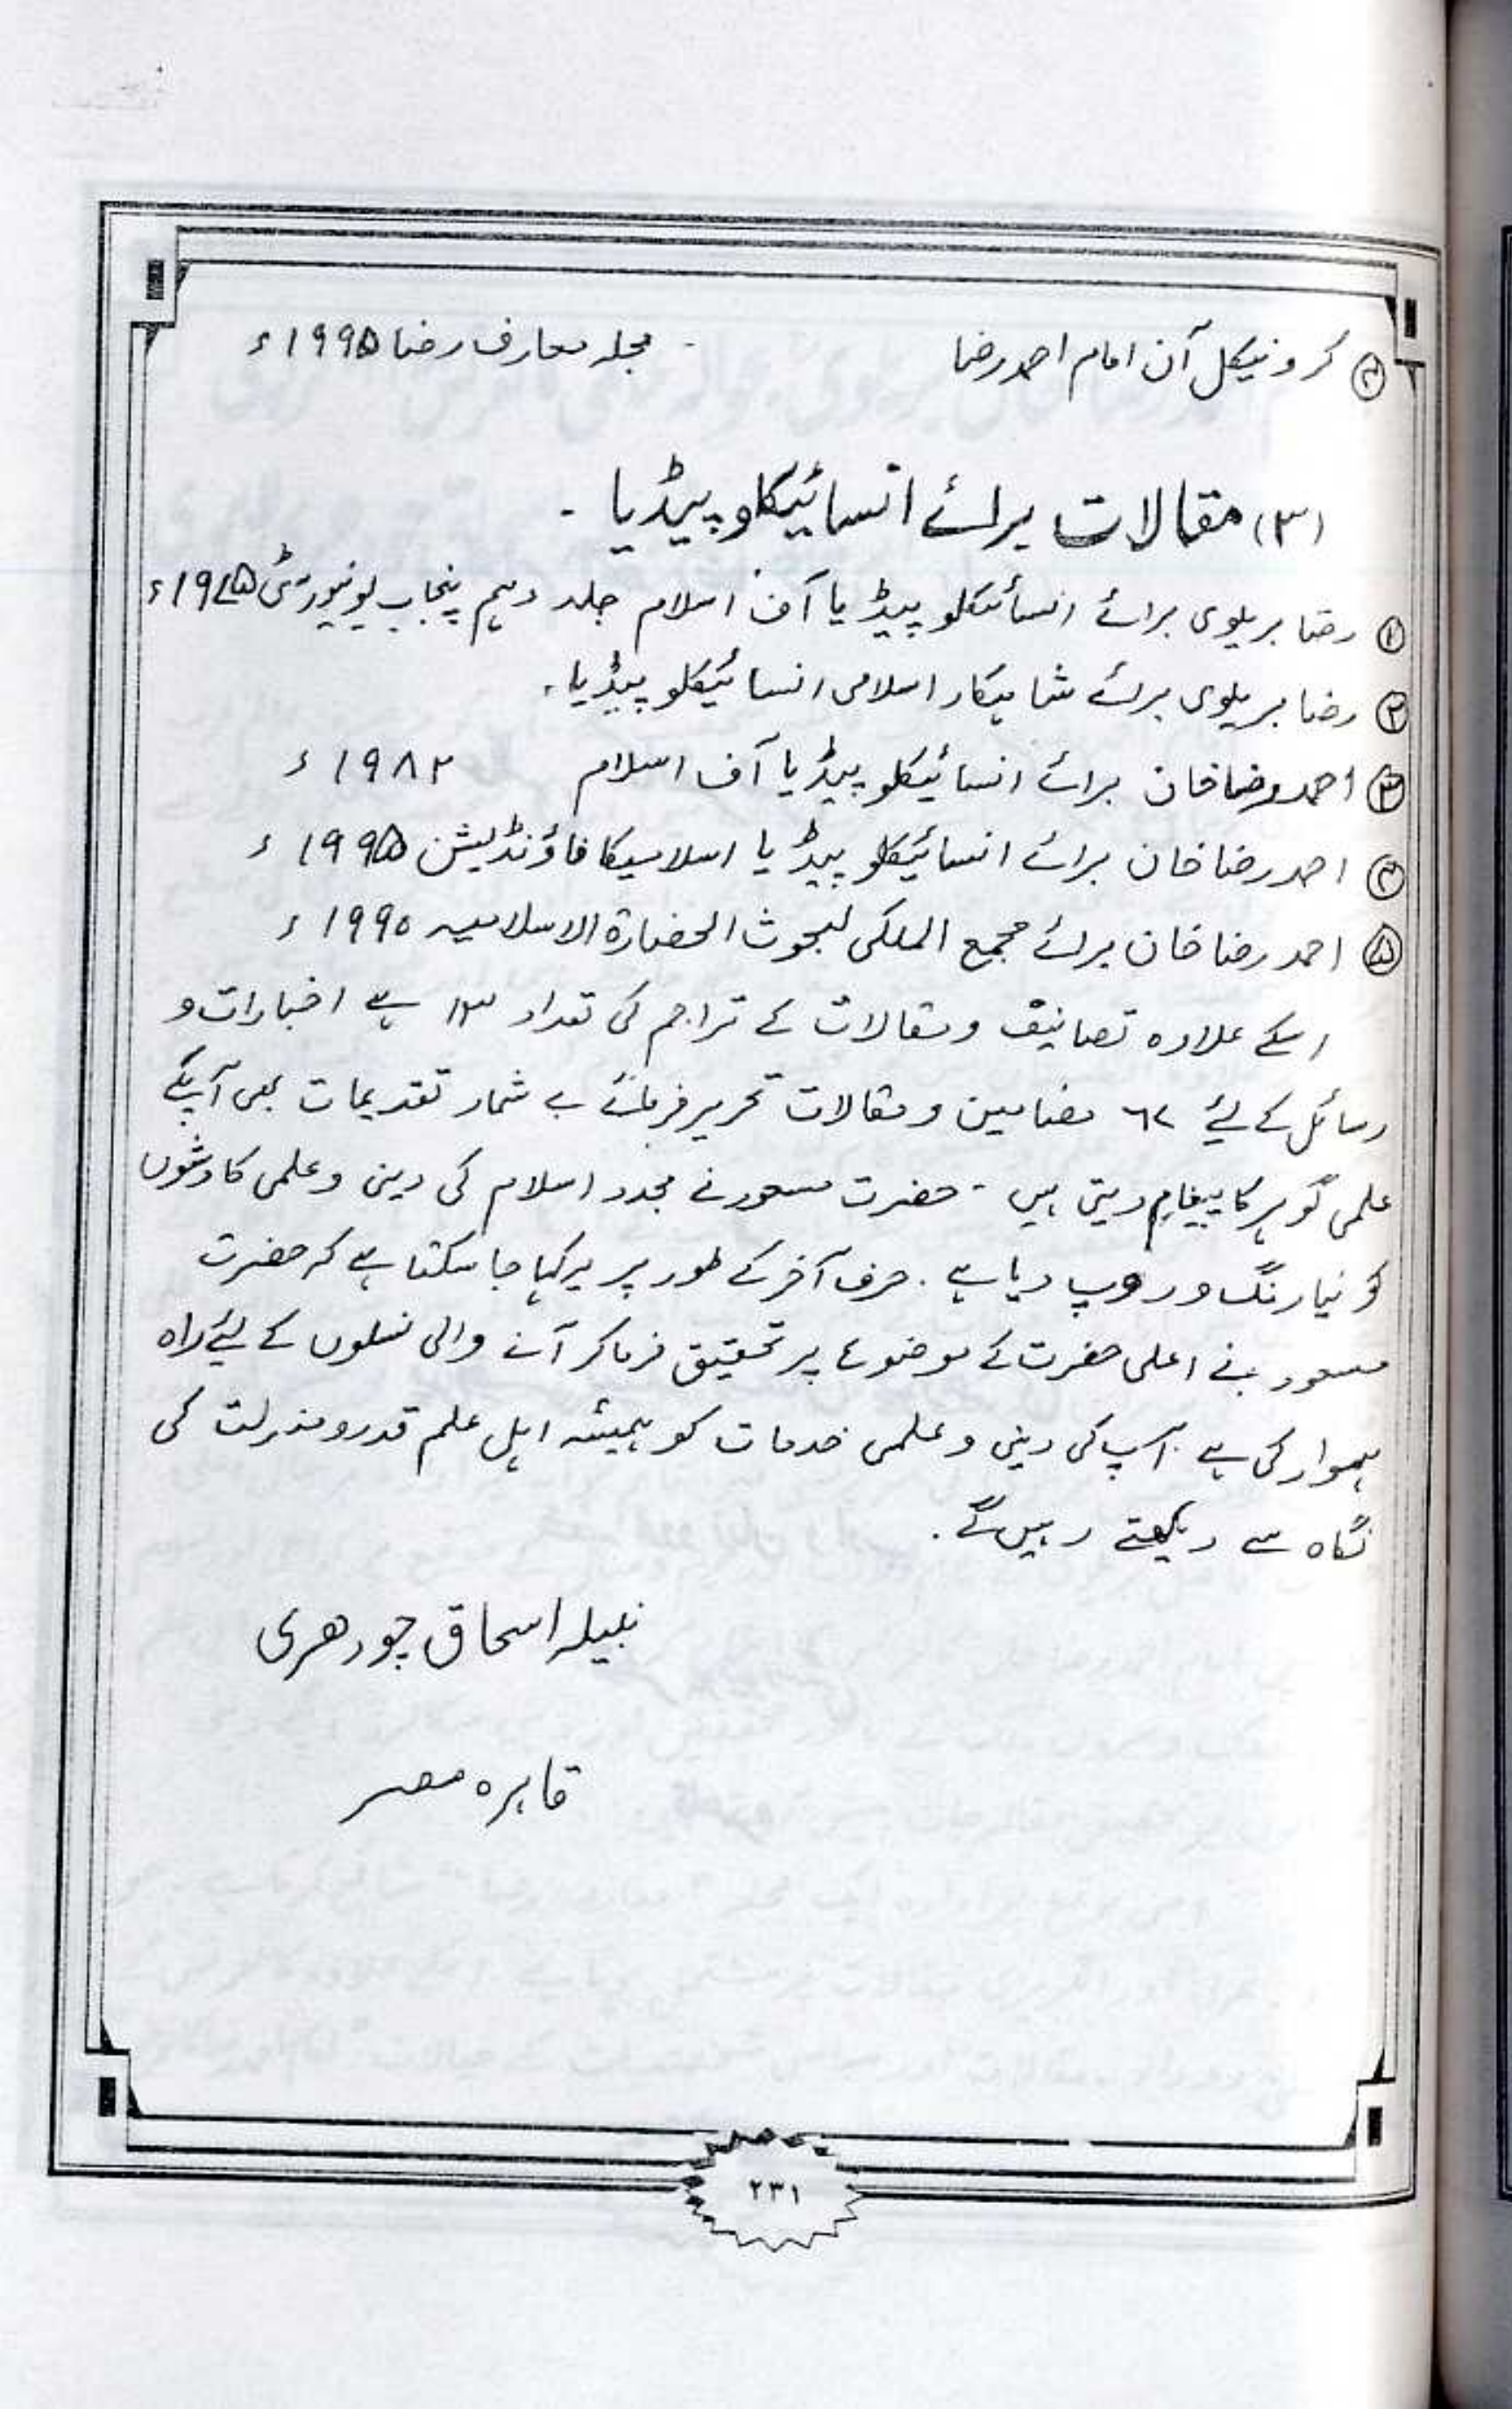 ④ کرونیکل آن امام احمد رضا - مجلہ معارف رضا ۱۹۹۵ء
(۳) مقالات برائے انسائیکلوپیڈیا -
① رضا بریلوی برائے انسائیکلوپیڈیا آف اسلام جلد دہم پنجاب یونیورسٹی ۱۹۷۵ء
② رضا بریلوی برائے شاہکار اسلامی انسائیکلوپیڈیا۔
③ احمد رضا خان برائے انسائیکلوپیڈیا آف اسلام ۱۹۸۲ء
④ احمد رضا خان برائے انسائیکلوپیڈیا اسلامیکا فاؤنڈیشن ۱۹۹۵ء
⑤ احمد رضا خان برائے مجمع الملکی لبحوث الحضارة الاسلامیہ ۱۹۹۰ء
اسکے علاوہ تصانیف و مقالات کے تراجم کی تعداد ۱۳ ہے اخبارات و
رسائل کے لیئے ۶۲ مضامین و مقالات تحریر فرمائے بے شمار تقدیمات بھی آپکے
علمی گوہر کا پیغام دیتی ہیں - حضرت مسعود نے مجدد اسلام کی دینی و علمی کاوشوں
کو نیا رنگ و روپ دیا ہے . حرف آخر کے طور پر یہ کہا جا سکتا ہے کہ حضرت
مسعود نے اعلی حضرت کے موضوع پر تحقیق فرما کر آنے والی نسلوں کے لیئے راہ
ہموار کی ہے . آپ کی دینی و علمی خدمات کو ہمیشہ اہل علم قدر و منزلت کی
نگاہ سے دیکھتے رہیں گے .
نبیلہ اسحاق چودھری
قاہرہ مصر
۲۳۱